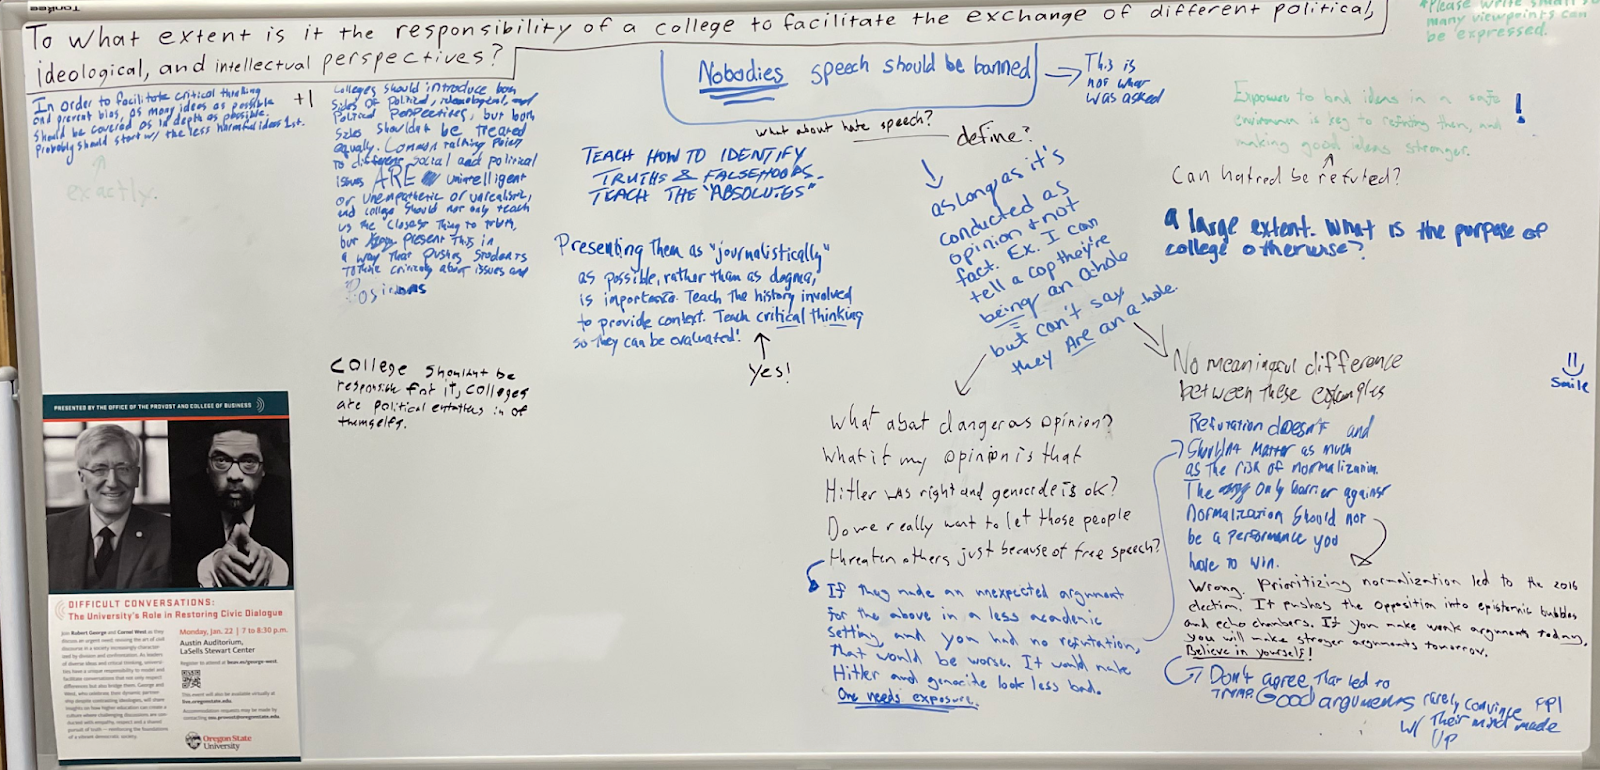 To what extent is it the responsibility of a college to facilitate the exchange of different political,
ideological, and intellectual perspectives?
*Please write small so
many viewpoints can
be expressed.
In order to facilitate critical thinking
and prevent bias, as many ideas as possible
should be covered as in depth as possible.
Probably should start w/ the less harmful ideas 1st.
+1
exactly.
Colleges should introduce both
sides of Political, ideological, and
Political Perspectives, but both
Sides shouldn't be treated
equally. Common talking points
to different social and political
issues ARE unintelligent
or unempathetic or unrealistic,
and college should not only teach
us the closest thing to truth,
but present this in
a way that pushes students
to think critically about issues and
Positions
College shouldnt be
responsible for it, colleges
are political entities in of
themselfs.
Nobodies speech should be banned
This is
not what
was asked
what about hate speech?
define?
TEACH HOW TO IDENTIFY
TRUTHS & FALSEHOODS.
TEACH THE "ABSOLUTES"
Presenting them as "journalistically"
as possible, rather than as dogma,
is important. Teach the history involved
to provide context. Teach critical thinking
so they can be evaluated!
Yes!
as long as it's
conducted as
opinion & not
fact. Ex. I can
tell a cop they're
being an a-hole
but can't say
they Are an a-hole.
Exposure to bad ideas in a safe
environment is key to refuting them, and
making good ideas stronger.
!
Can hatred be refuted?
a large extent. What is the purpose of
college otherwise?
Smile
No meaningful difference
between these examples
What about dangerous opinion?
What if my opinion is that
Hitler was right and genocide is ok?
Do we really want to let those people
threaten others just because of free speech?
If they made an unexpected argument
for the above in a less academic
setting, and you had no refutation,
that would be worse. It would make
Hitler and genocide look less bad.
One needs exposure.
Refutation doesn't and
Shouldn't matter as much
as the risk of normalization.
The only barrier against
normalization should not
be a performance you
have to win.
Wrong. Prioritizing normalization led to the 2016
election. It pushes the opposition into epistemic bubbles
and echo chambers. If you make weak arguments today,
you will make stronger arguments tomorrow.
Believe in yourself!
Don't agree that led to
Good arguments rarely convince ppl
w/ their mind made
up
PRESENTED BY THE OFFICE OF THE PROVOST AND COLLEGE OF BUSINESS
DIFFICULT CONVERSATIONS:
The University's Role in Restoring Civic Dialogue
Join Robert George and Cornel West as they
discuss an urgent need: reviving the art of civil
discourse in a society increasingly character-
ized by division and confrontation. As leaders
of diverse ideas and critical thinking, universi-
ties have a unique responsibility to model and
facilitate conversations that not only respect
differences but also bridge them. George and
West, who exercise their dynamic partner-
ship despite contrasting ideologies, will share
insights on how higher education can create a
culture where challenging discussions are con-
ducted with empathy, respect and a shared
pursuit of truth — reinforcing the foundations
of a vibrant democratic society.
Monday, Jan. 22 | 7 to 8:30 p.m.
Austin Auditorium,
LaSells Stewart Center
Register to attend at beav.es/george-west.
This event will also be available virtually at
live.oregonstate.edu.
Accommodation requests may be made by
contacting
Oregon State
University